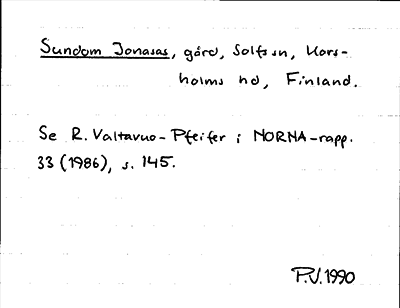 Sundom Jonasas, gård, Solfs sn, Kors-
holms hd, Finland.
Se R. Valtavuo-Pfeifer i NORNA-rapp.
33 (1986), s. 145.
P.V. 1990